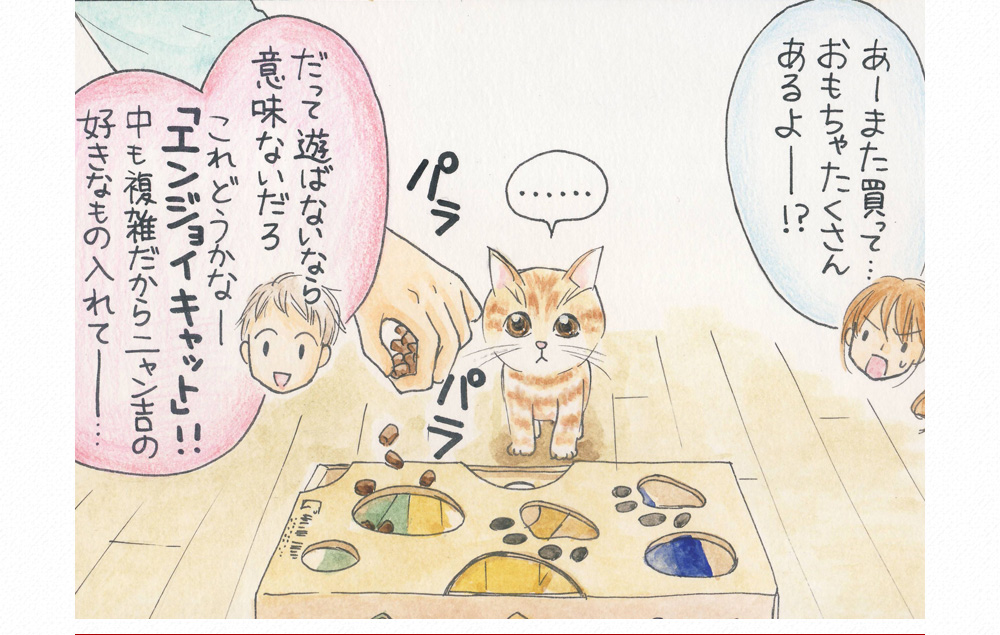 あーまた買って…
おもちゃたくさん
あるよー!?
……
パラ
パラ
だって遊ばないなら
意味ないだろ
これどうかなー
「エンジョイキャット」!!
中も複雑だからニャン吉の
好きなもの入れてー…